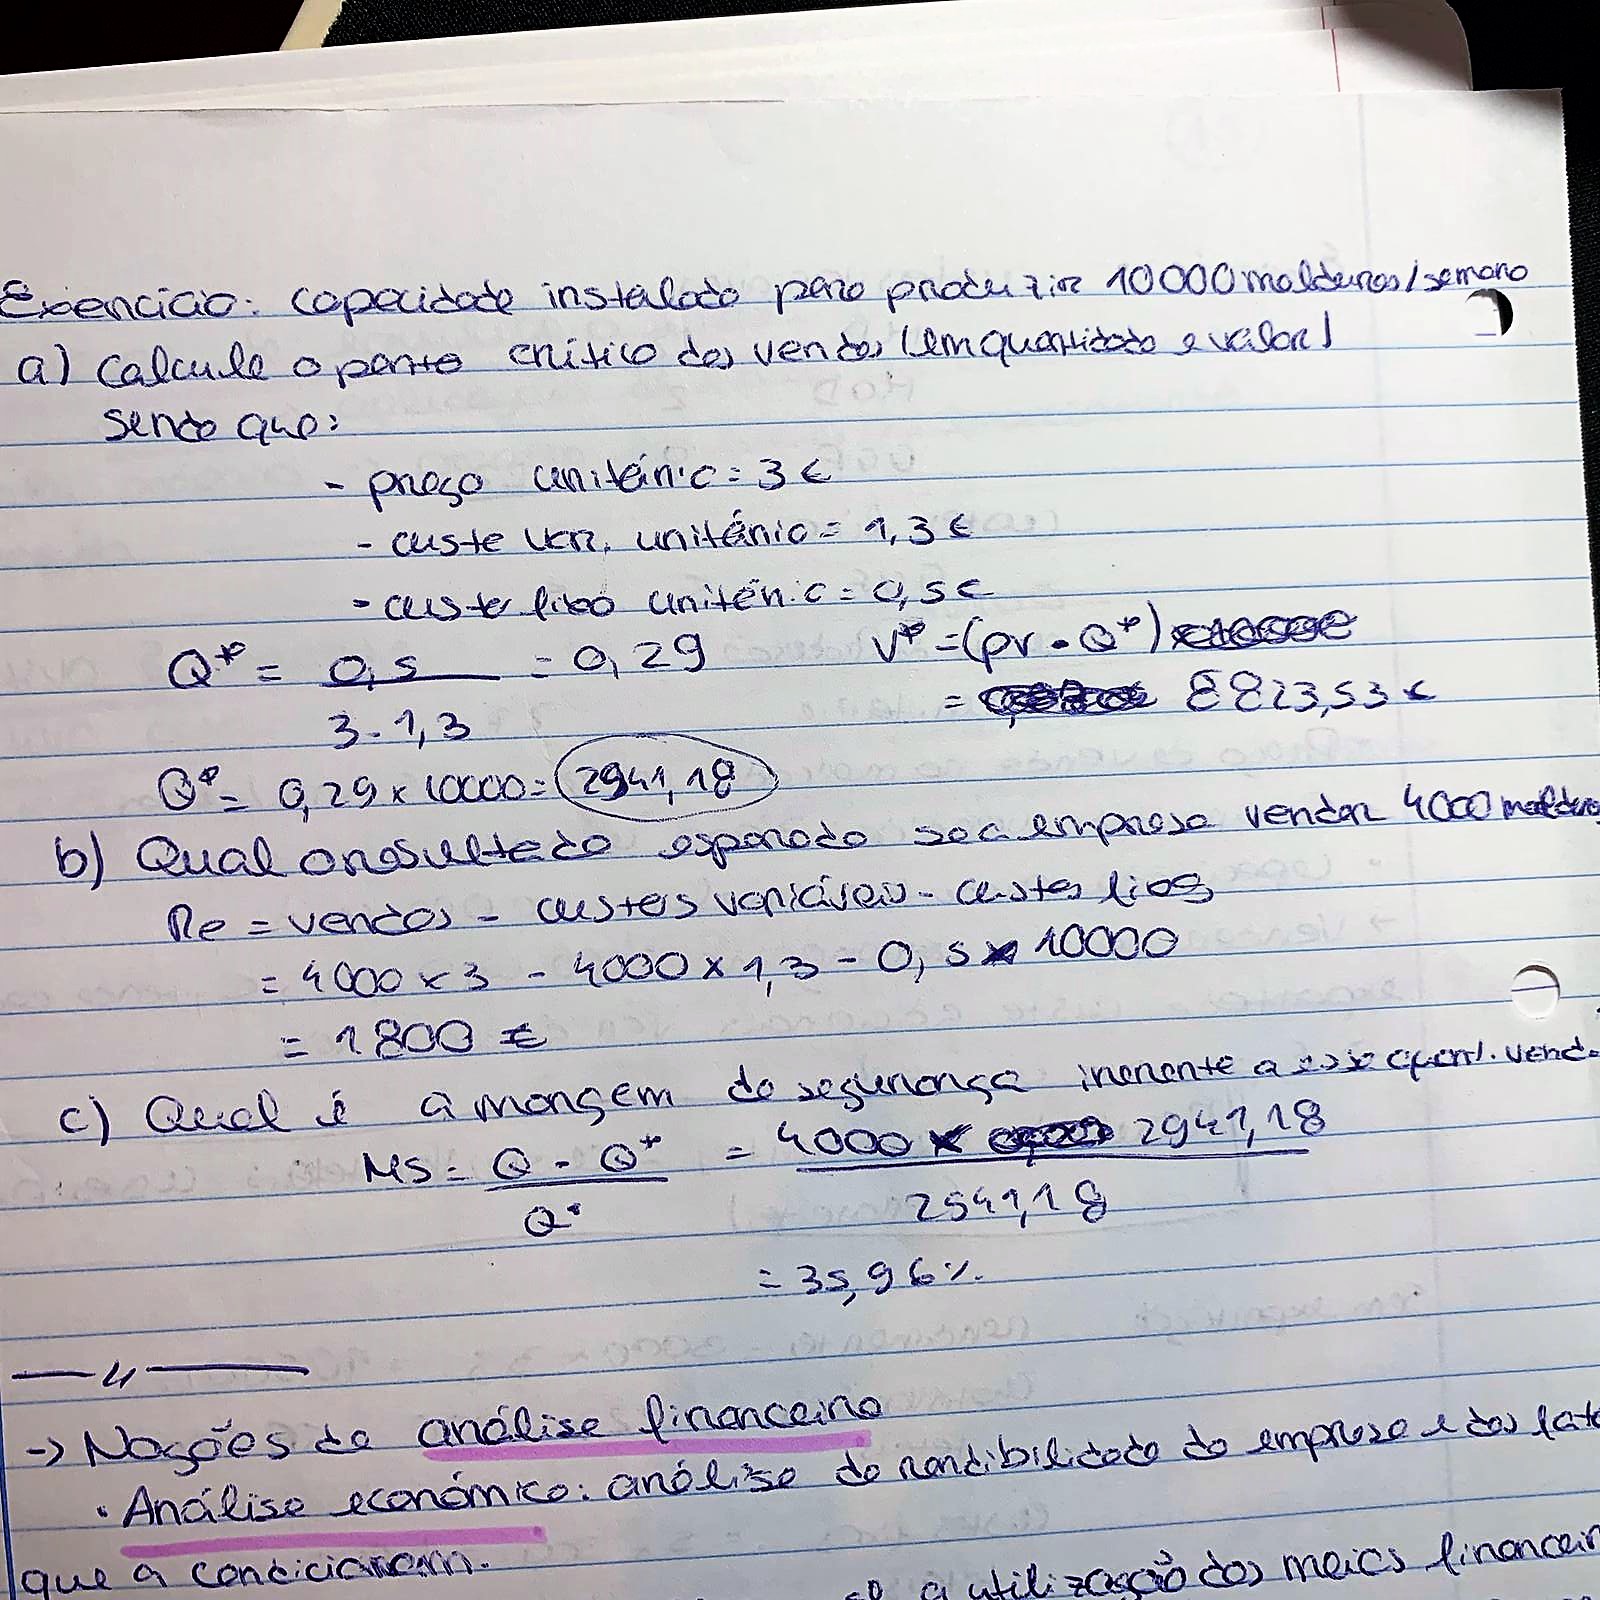 Exercício: capacidade instalada para produzir 10000 molduras/semana
a) Calcule o ponto crítico das vendas (em quantidade e valor)
sendo que:
- preço unitário = 3 €
- custo var. unitário = 1,3 €
- custo fixo unitário = 0,5 €
Q* = 0,5 / 3-1,3 = 0,29 V* = (pv . Q*)
= 8823,53 €
Q* = 0,29 x 10000 = 2941,18
b) Qual o resultado esperado se a empresa vender 4000 molduras
Re = vendas - custos variáveis - custos fixos
= 4000 x 3 - 4000 x 1,3 - 0,5 x 10000
= 1800 €
c) Qual é a margem de segurança inerente a esse quant. vend.
MS = Q - Q* / Q* = 4000 - 2941,18 / 2941,18
= 35,96%
-> Noções de análise financeira
• Análise económica: análise da rendibilidade da empresa e dos fato
que a condicionam.
a utilização dos meios financeir